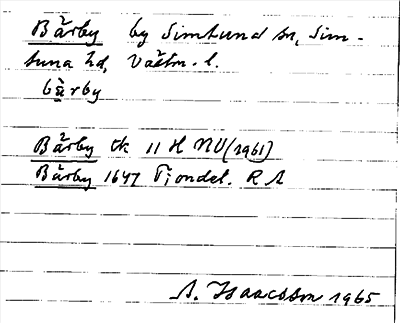 Bärby by Simtuna sn, Sim-
tuna hd, Västm. l.
bä̀rby
Bärby tk 11 H NV (1961)
Bärby 1647 Tiondel. RA
A. Isaacsson 1965